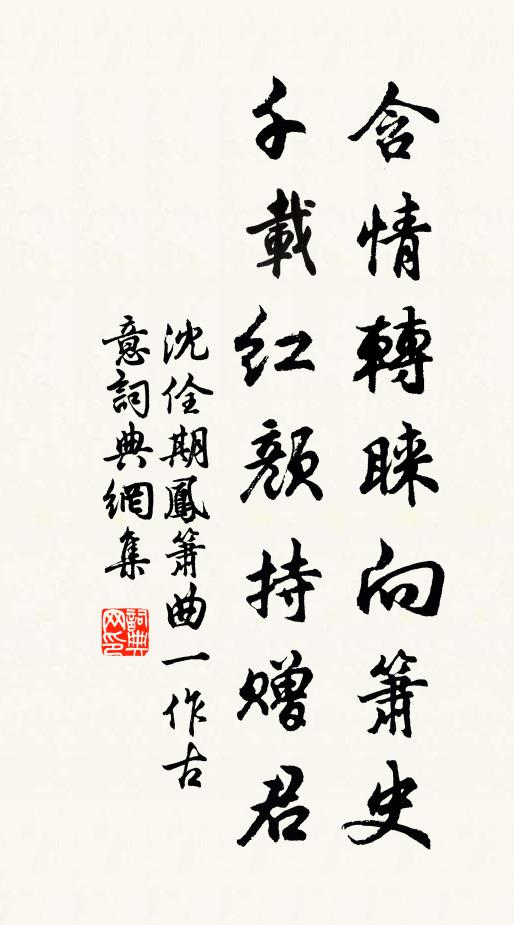 含情轉睞向簫史
千載紅顏持贈君
沈佺期鳳簫曲一作古
意詞典網集
詞典
网印